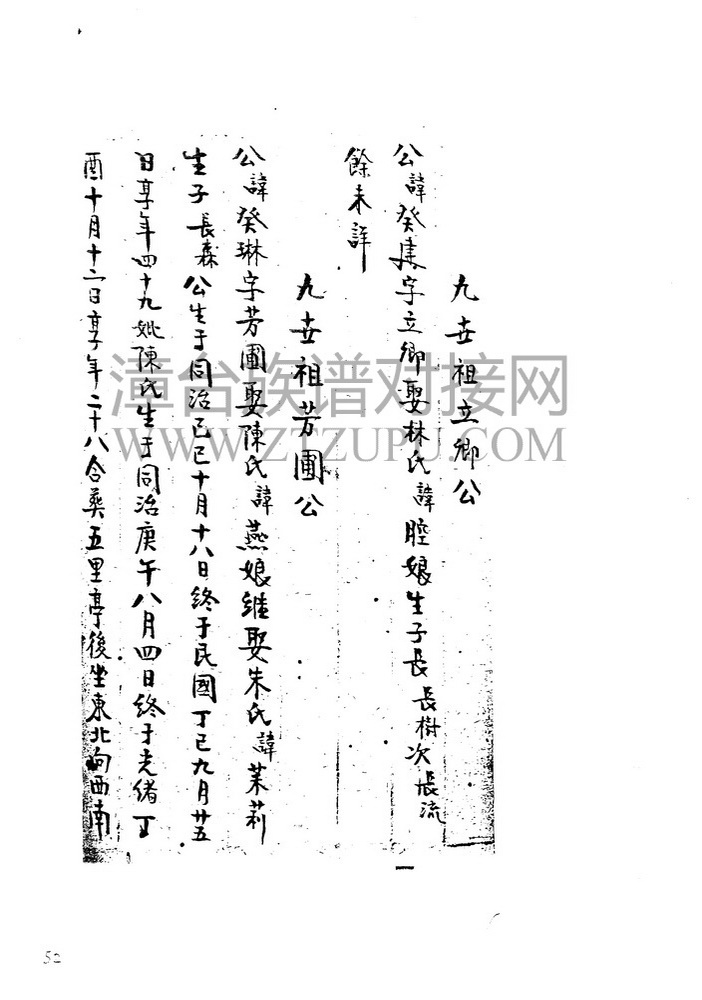 九世祖立卿公
公諱癸集字立卿娶林氏諱腔娘生子長長樹次長流
餘未詳
九世祖芳圃公
公諱癸琳字芳圃娶陳氏諱燕娘継娶朱氏諱茉莉
生子長森公生于同治己巳十月十八日終于民國丁巳九月廿五
日享年四十九妣陳氏生于同治庚午八月四日終于光緒丁
酉十月十二日享年二十八合葬五里亭後坐東北向西南
漳台族谱对接网
WWW.ZTZUPU.COM
52